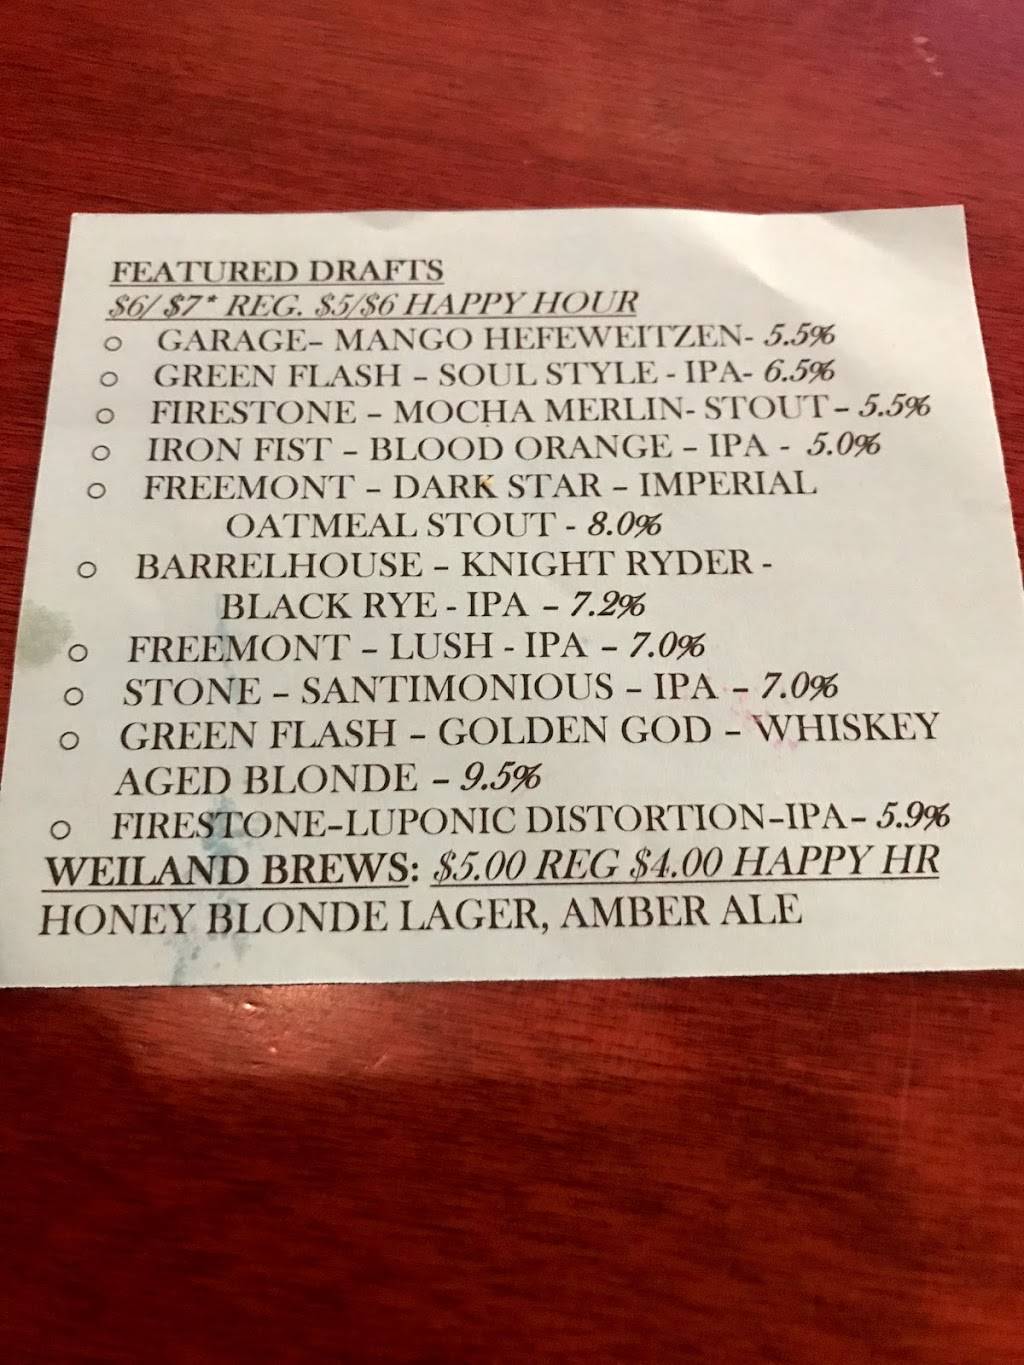 FEATURED DRAFTS
$6/ $7* REG. $5/$6 HAPPY HOUR
○ GARAGE– MANGO HEFEWEITZEN- 5.5%
○ GREEN FLASH – SOUL STYLE - IPA- 6.5%
○ FIRESTONE – MOCHA MERLIN- STOUT – 5.5%
○ IRON FIST – BLOOD ORANGE – IPA - 5.0%
○ FREEMONT – DARK STAR – IMPERIAL
OATMEAL STOUT - 8.0%
○ BARRELHOUSE – KNIGHT RYDER -
BLACK RYE - IPA – 7.2%
○ FREEMONT – LUSH - IPA – 7.0%
○ STONE – SANTIMONIOUS – IPA – 7.0%
○ GREEN FLASH – GOLDEN GOD – WHISKEY
AGED BLONDE – 9.5%
○ FIRESTONE–LUPONIC DISTORTION–IPA– 5.9%
WEILAND BREWS: $5.00 REG $4.00 HAPPY HR
HONEY BLONDE LAGER, AMBER ALE